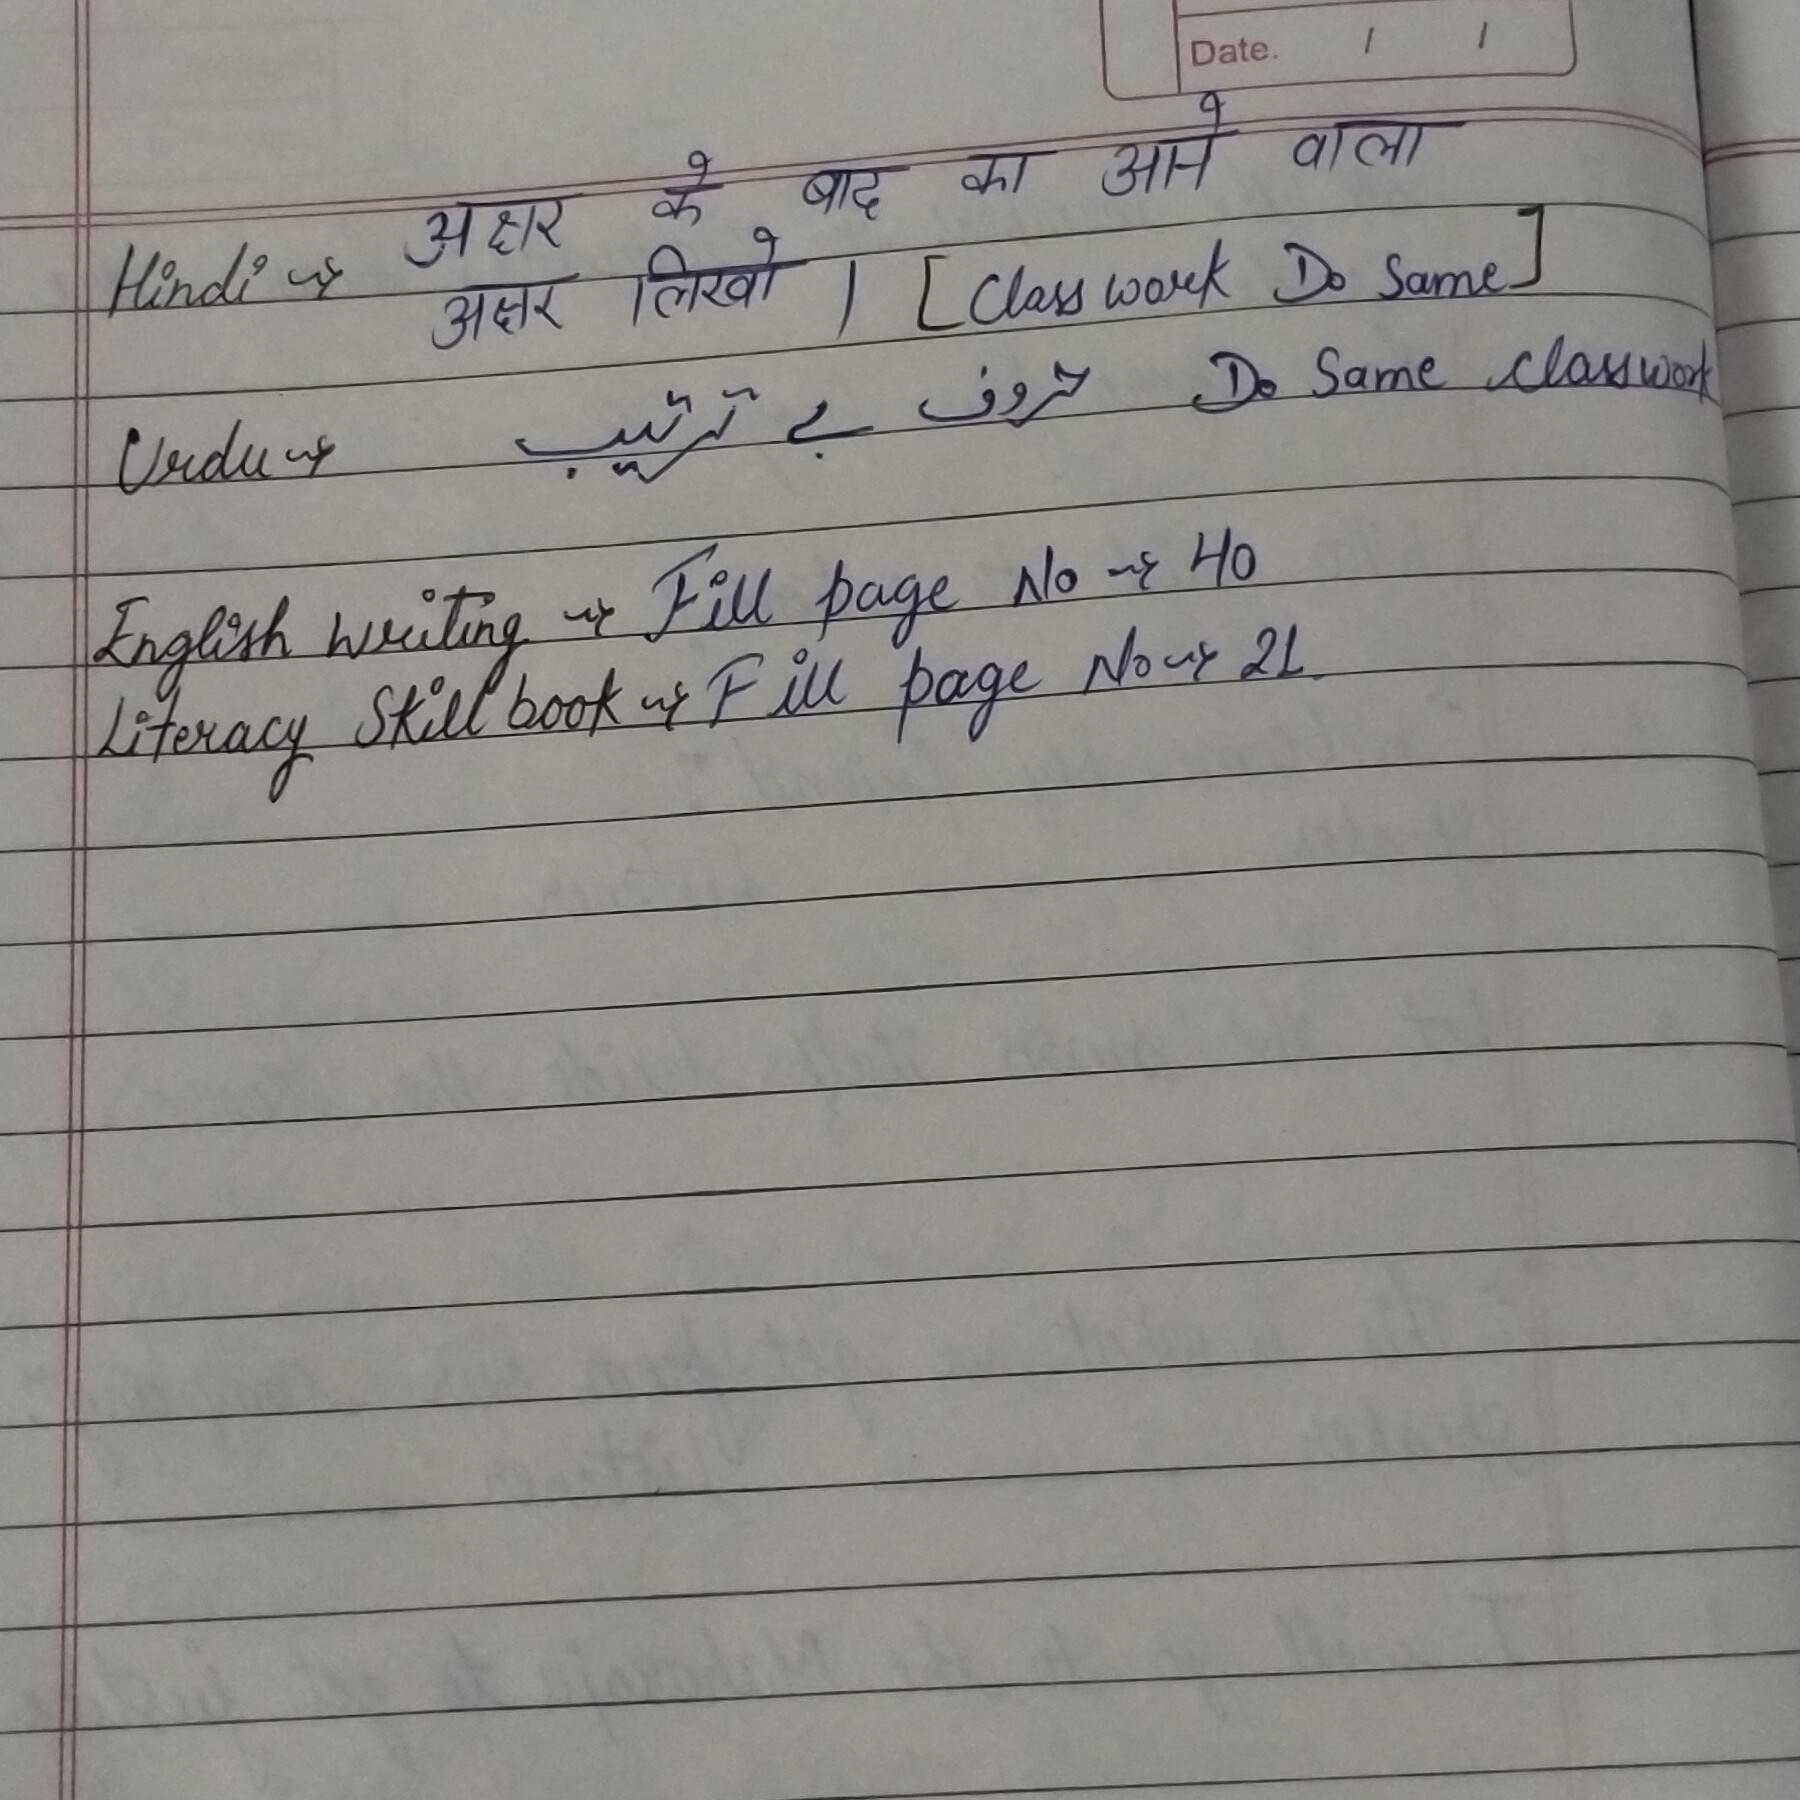 Date. / /
Hindi → अक्षर के बाद का आने वाला
अक्षर लिखो | [Class work Do Same]
Urdu → حروف بے ترتیب Do Same classwork
English writing → Fill page No → 40
Literacy Skill book → Fill page No → 21.